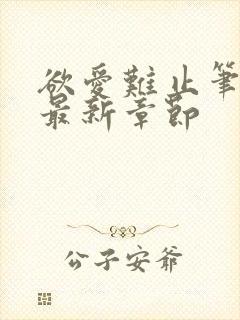 欲爱難止筆
最新章節
公子安爷